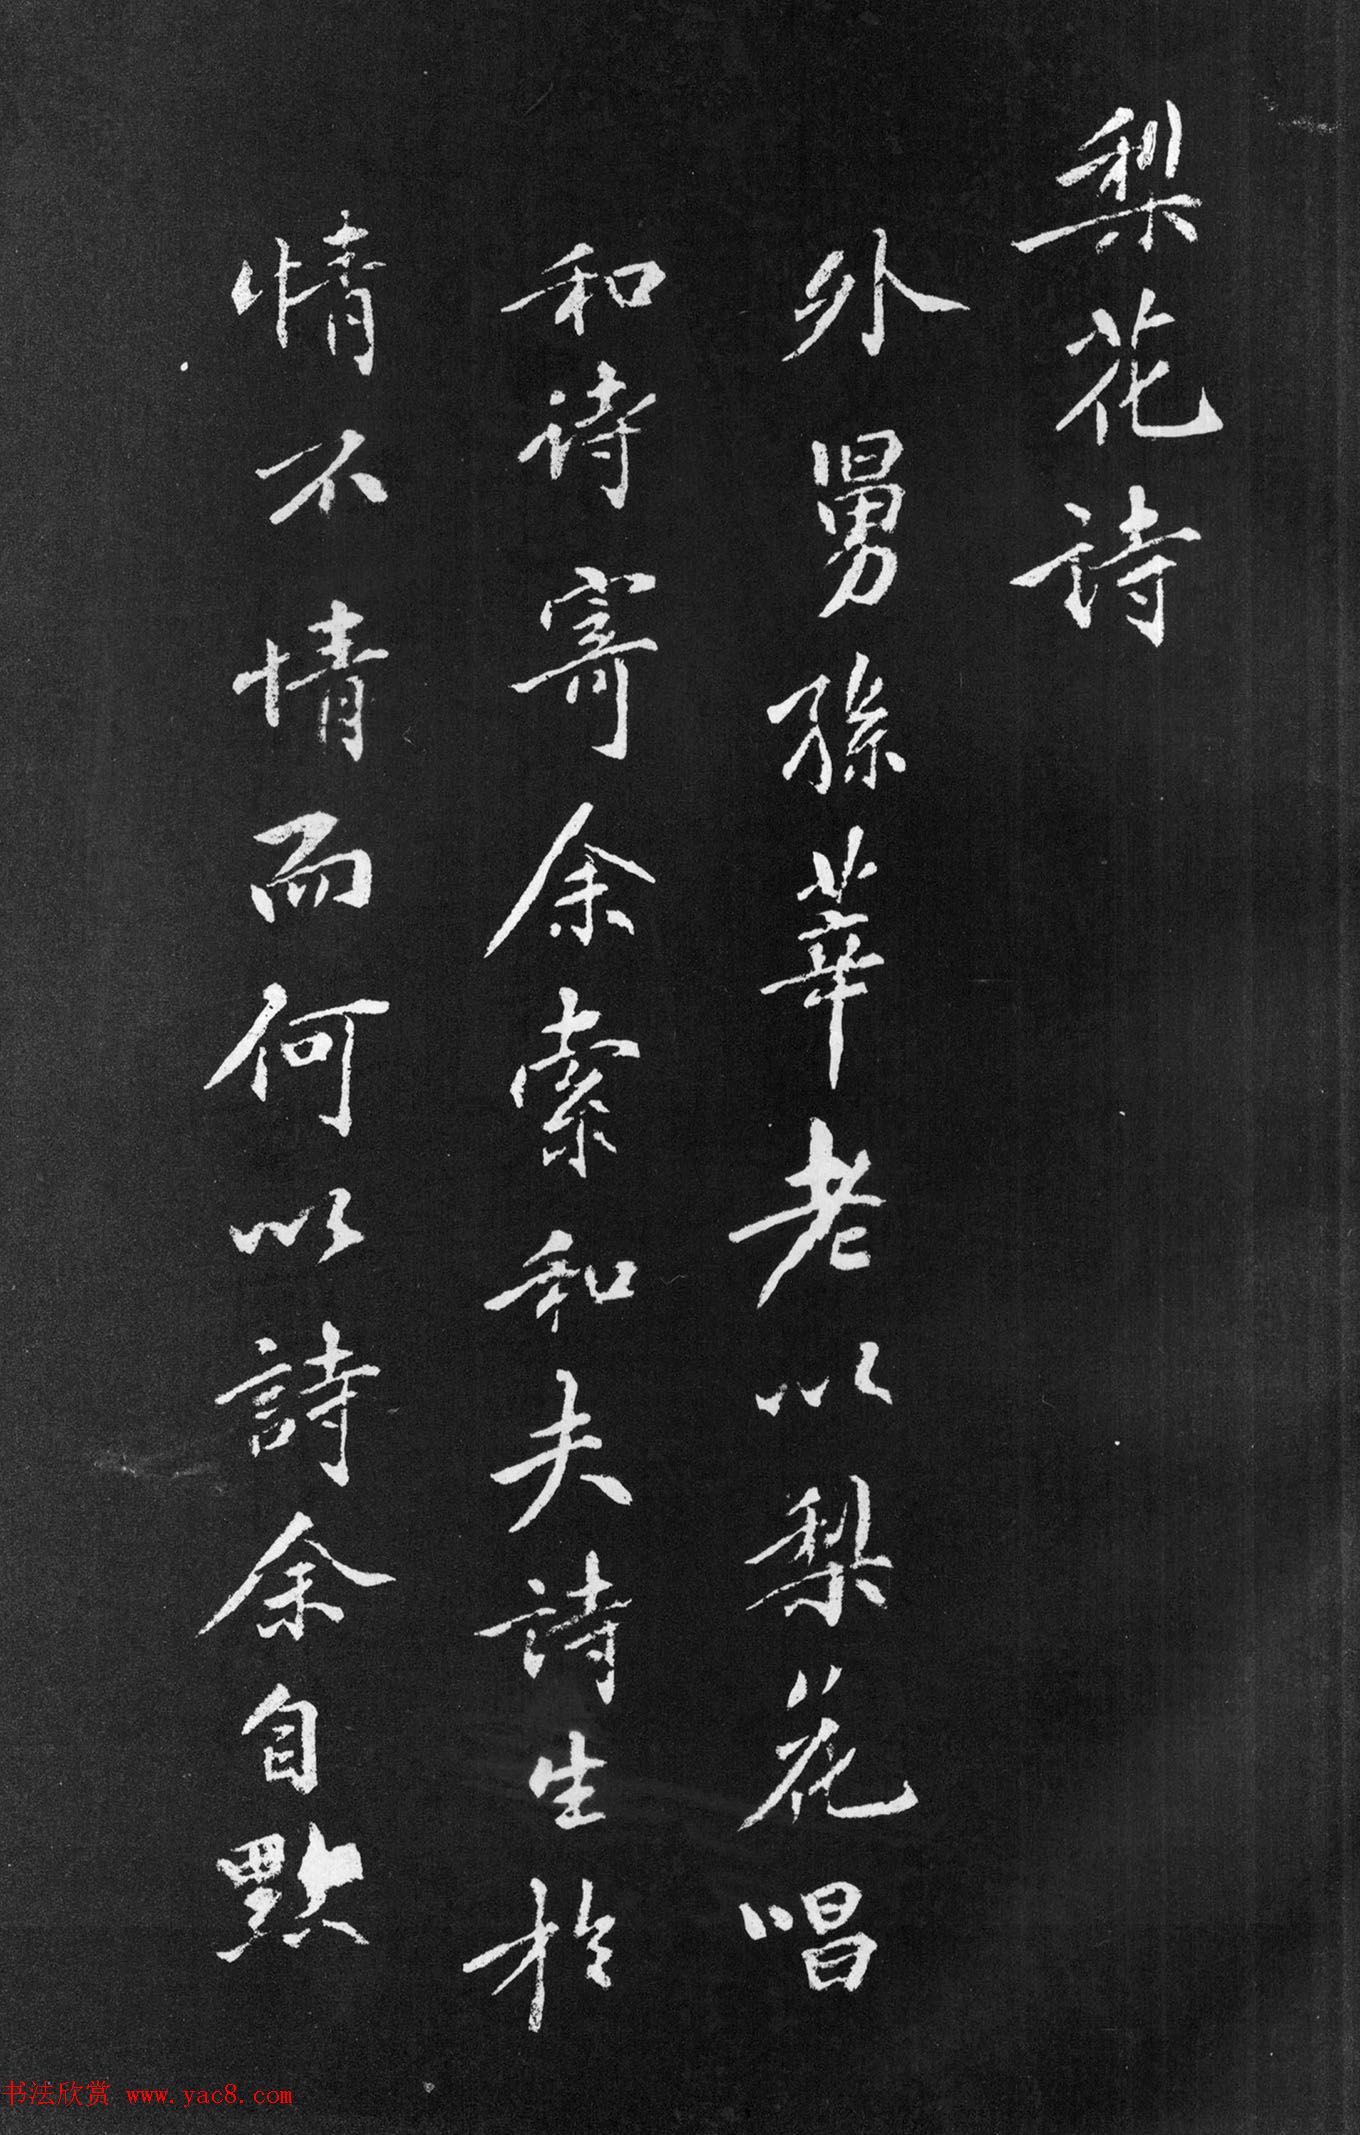 梨花詩
外舅孫莘老以梨花唱
和詩寄余索和夫詩生於
情不情而何以詩余自點
书法欣赏 www.yac8.com